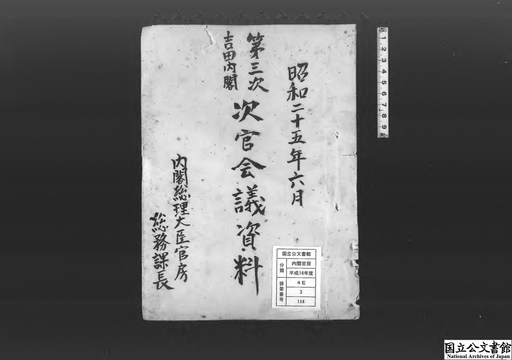 昭和二十五年六月
第三次
吉田内閣
次官会議資料
内閣総理大臣官房
総務課長
国立公文書館
分類
内閣官房
平成14年度
4E
排架番号
3
114
1 2 3 4 5 6 7 8 9
国立公文書館
National Archives of Japan